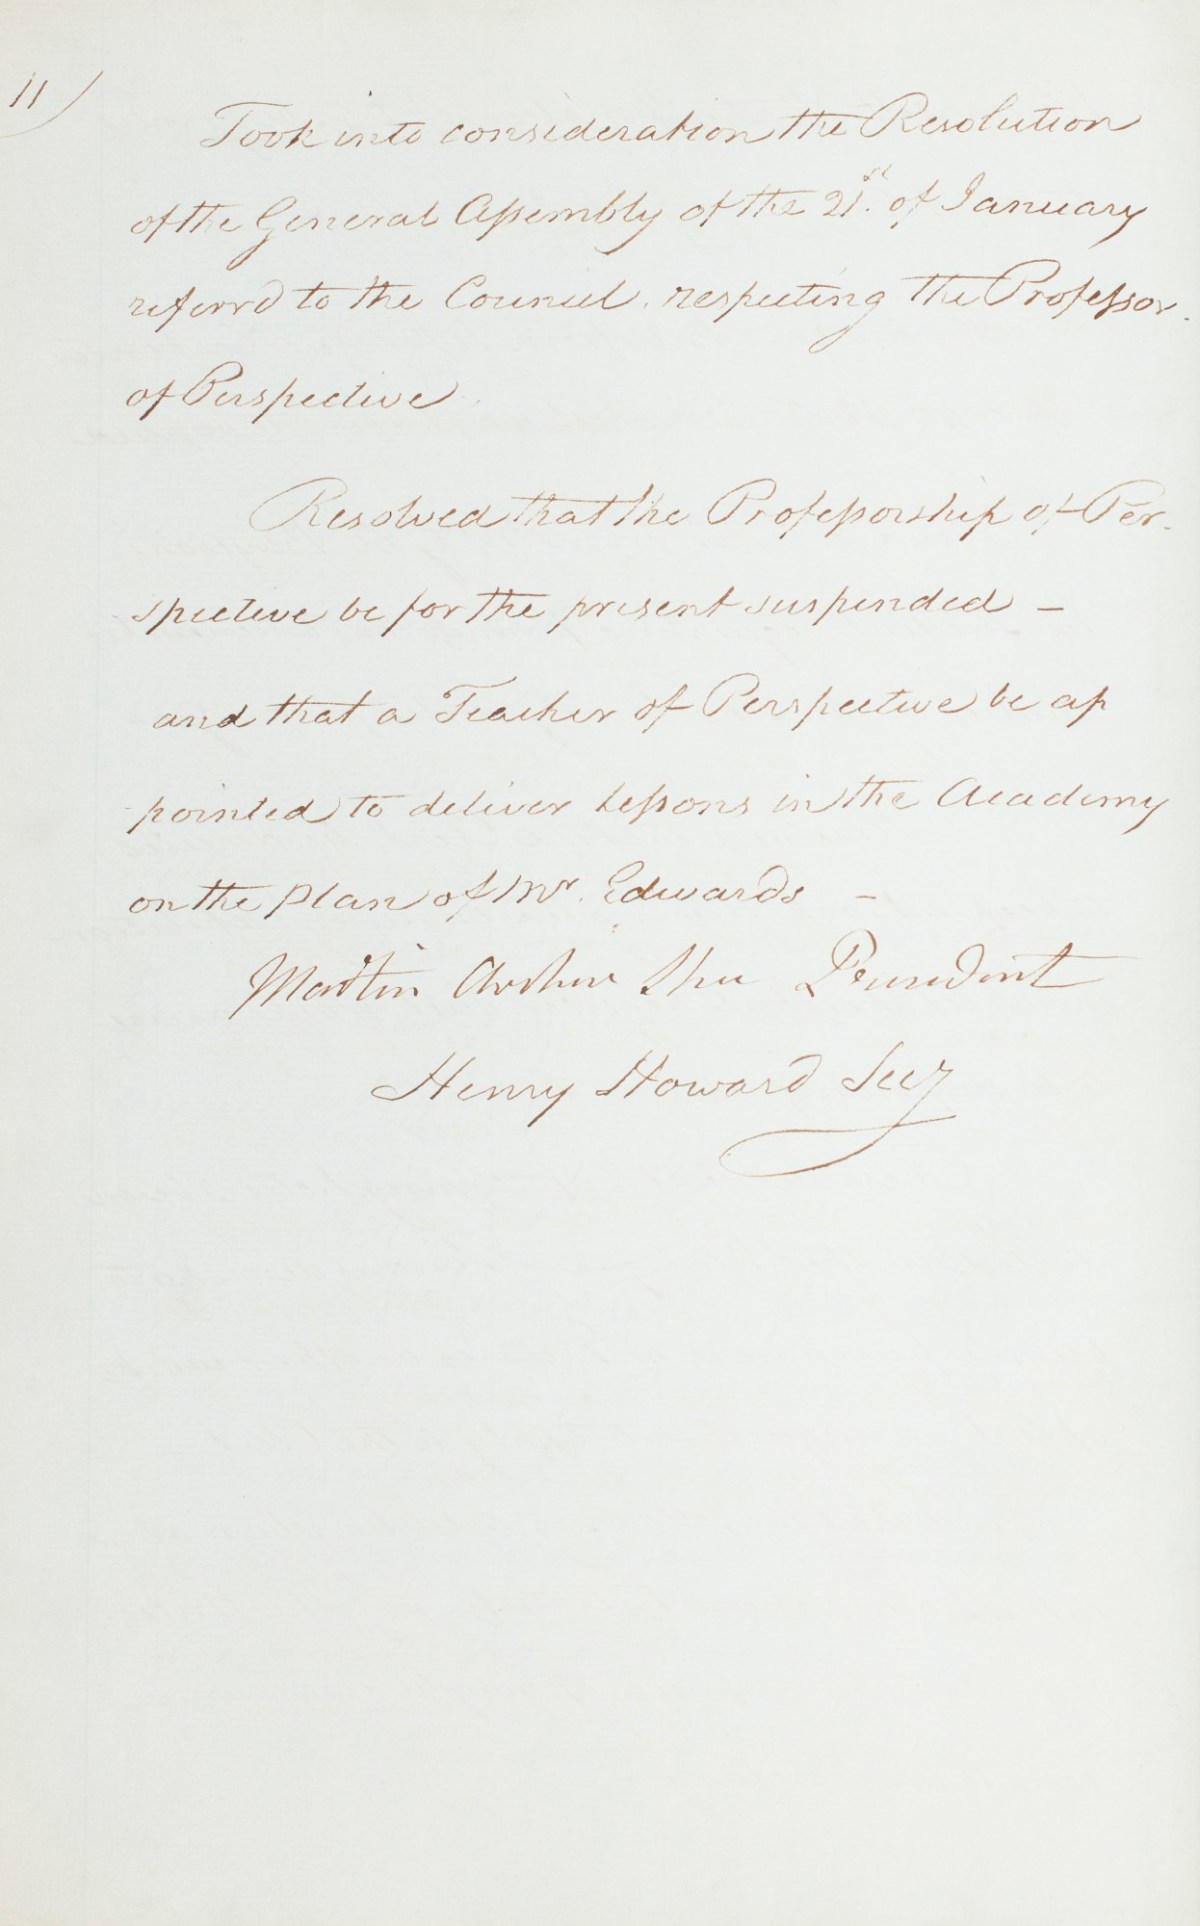 11
Took into consideration the Resolution
of the General Assembly of the 21st. of January
referr'd to the Council. respecting the Professor
of Perspective
Resolved that the Professorship of Per-
spective be for the present suspended –
and that a Teacher of Perspective be ap
pointed to deliver Lessons in the Academy
on the plan of Mr. Edwards –
Martin Archer Shee President
Henry Howard Secy